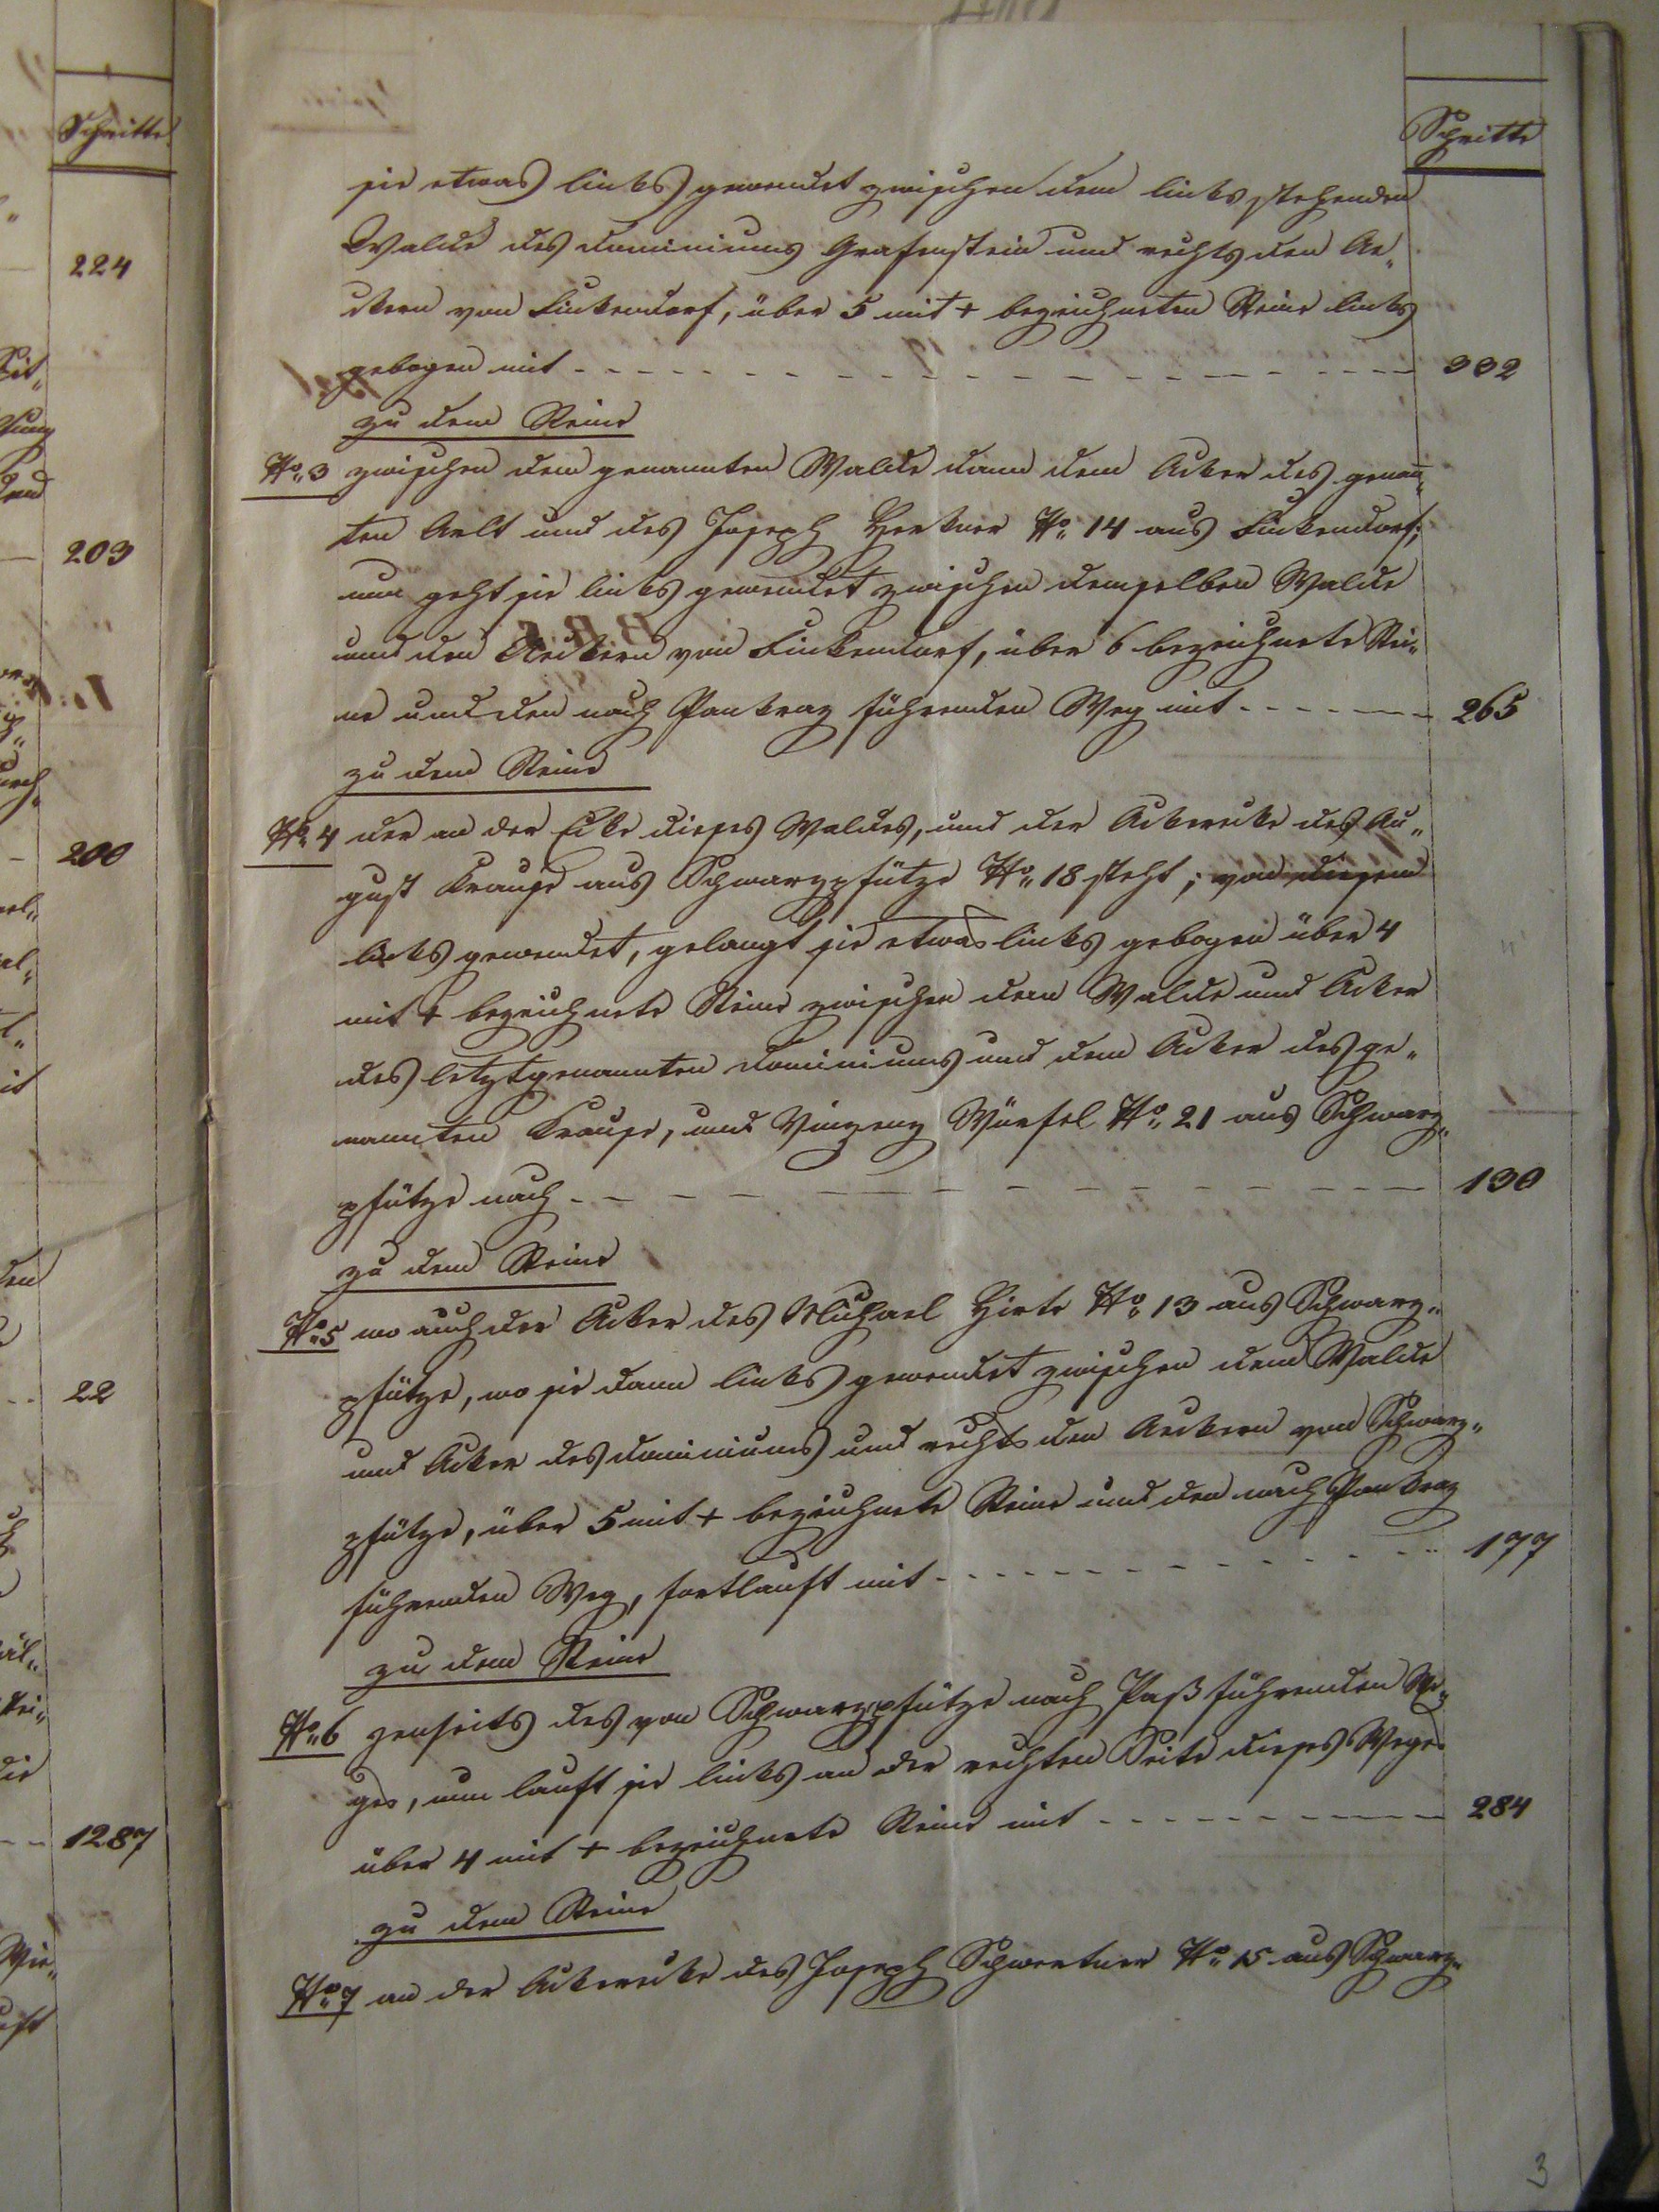 Schritte
224
203
200
22
1287
Schritte
sie etwas links gewendet zwischen dem links stehenden
Walde des Dominiums Grafenstein und rechts den Ae„
ckern von Finkendorf, über 5 mit + bezeichneten Steine links
gebogen mit 332
zu dem Steine
No„ 3 zwischen dem genannten Walde dann dem Acker des genan̄„
ten und des Joseph No„ 14 aus Finkendorf;
nun geht sie links gewendet zwischen demselben Walde
und den Aeckern von Finkendorf, über 6 bezeichnete Stei„
ne und den nach Pankraz führenden Weg mit 265
zu dem Steine
No„ 4 der an der Ecke dieses Waldes, und der Ackerecke des Au„
gust Krause aus Schwarzpfütze No„ 18 steht; von diesem
links gewendet, gelangt sie etwas links gebogen über 4
mit + bezeichnete Steine zwischen dem Walde und Acker
des letztgenannten Dominiums und dem Acker des ge„
nannten Krause, und Vinzenz Würfel No„ 21 aus Schwarz„
pfütze nach 130
zu dem Steine
No„ 5 wo auch der Acker des Michael Hirte No„ 13 aus Schwarz„
pfütze, wo sie dann links gewendet zwischen dem Walde
und Acker des Dominiums und rechts den Aeckern von Schwarz„
pfütze, über 5 mit + bezeichnete Steine und den nach Pankraz
führenden Weg, fortlauft mit 177
zu dem Steine
No„ 6 jenseits des von Schwarzpfütze nach Paß führenden We„
ges, nun lauft sie links an der rechten Seite dieses Weges
über 4 mit + bezeichnete Steine mit 284
zu dem Steine
No„ 7 an der Ackerecke des Joseph Schwertner No„ 15 aus Schwarz„
3